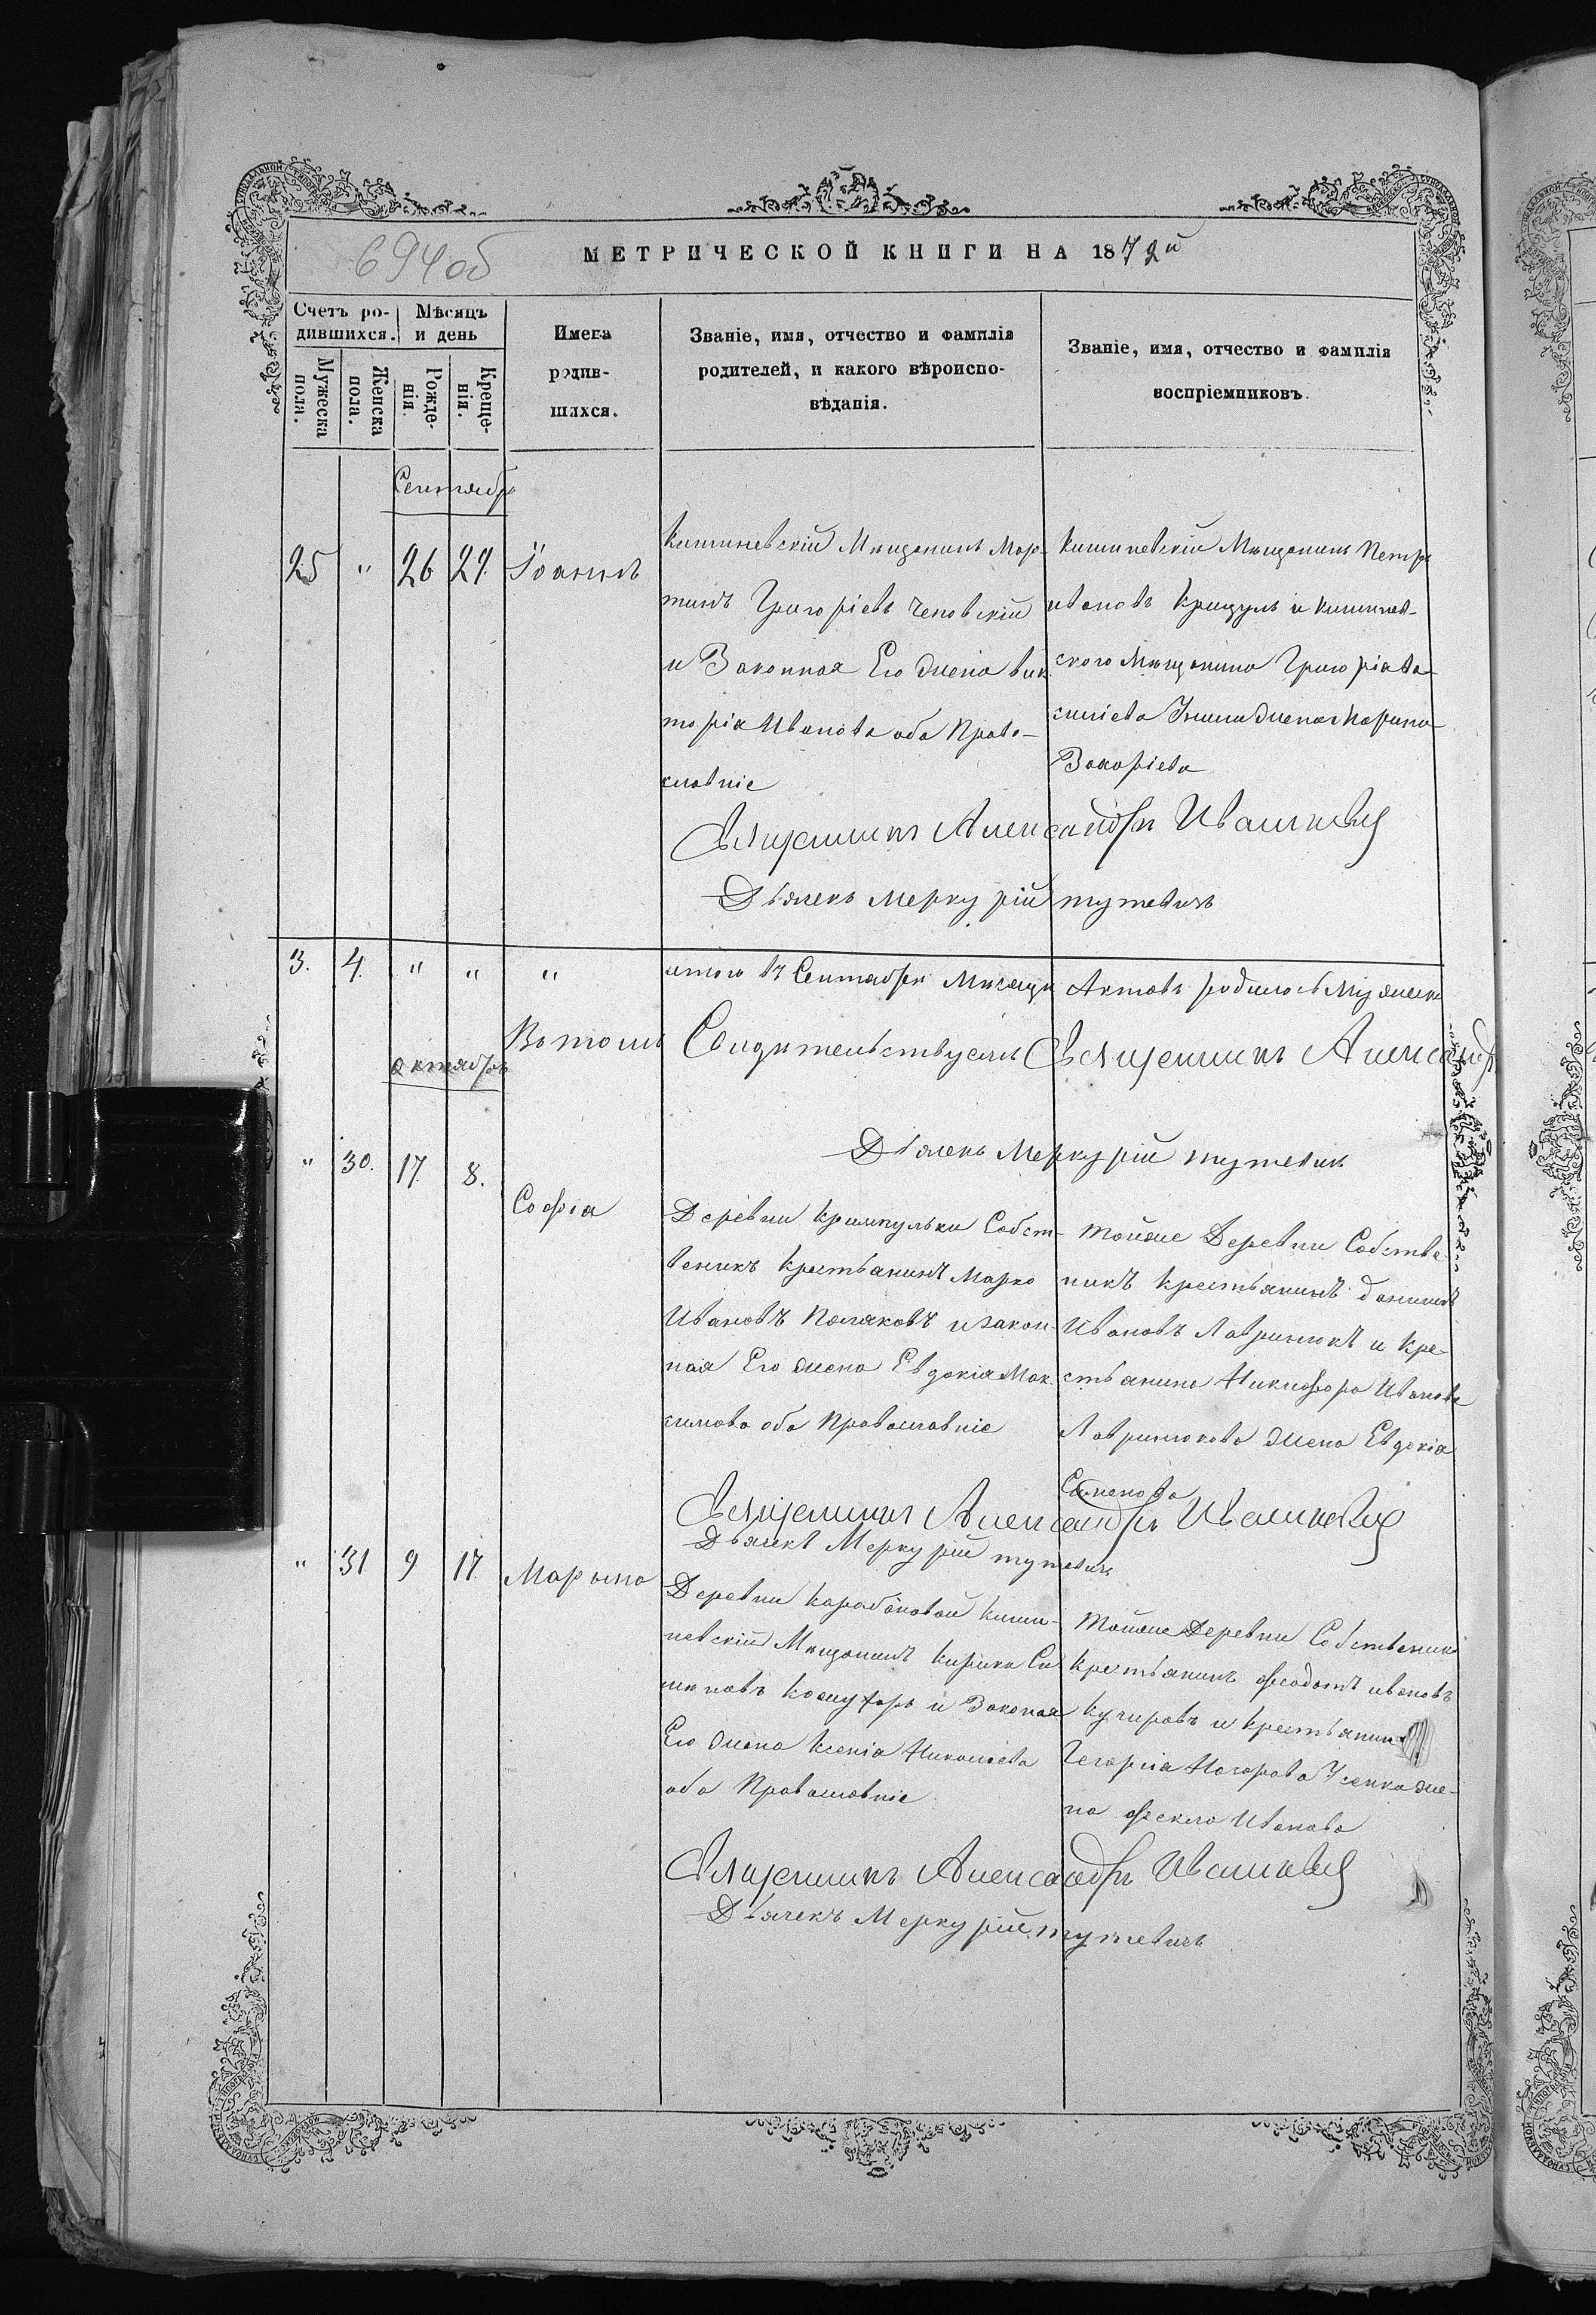 694об
МЕТРИЧЕСКОЙ КНИГИ НА 1872й
Счетъ ро-
дившихся.
Мѣсяцъ
и день
Мужеска
пола.
Женска
пола.
Рожде-
нія.
Креще-
нія.
Имена
родив-
шихся.
Званіе, имя, отчество и фамилія
родителей, и какого вѣроиспо-
вѣданія.
Званіе, имя, отчество и фамилія
воспріемниковъ.
Сентябрь
25 " 26 29. Іоаннъ
Кишиневскій Мищанинъ Мар-
тинъ Григоріевъ Чеповскій
и Законная Его жена Вик
торія Иванова оба Право-
славніе
Кишиневскій Мищанинъ Петръ
Ивановъ Крицулъ и Кишинев-
ского Мищанина Григорія Ва-
силіева жена Марина
Захаріева
Священникъ Александръ Ивашкевич
Дьячекъ Меркурій тутевичъ
3. 4. " " "
итого въ Сентябри Мисяци Актовъ родилось Мужеска
Вотомъ Свидительствуемъ Священникъ Александръ
Октябрь
Дьячекъ Меркурій тутевичъ
" 30. 17. 8. Софія
Деревни Кримпульки Собст-
веникъ Крестьянинъ Марко
Ивановъ Поляковъ и закон-
ная Его жена Евдокія Мак-
симова оба Православніе
тойже Деревни Собстве-
никъ Крестьянинъ данилъ
Ивановъ Лавринюкъ и Кре-
стьянина Никифора Иванова
Лавринюкова жена Евдокія
Семенова
Священникъ Александръ Ивашкевич
Дьячекъ Меркурій тутевичъ
" 31 9 17. Марына
Деревни Карабановой Киши-
невскій Мищанинъ Кирикъ Си
и Законая
Его жена Ксенія Николаева
оба Православніе
тойже Деревни Собственикъ
Крестьянинъ Феодотъ Ивановъ
Кучировъ и Крестьянина
Георгіа Назарова Усенка же-
на Фекла Иванова
Священникъ Александръ Ивашкевич
Дьячекъ Меркурій тутевичъ